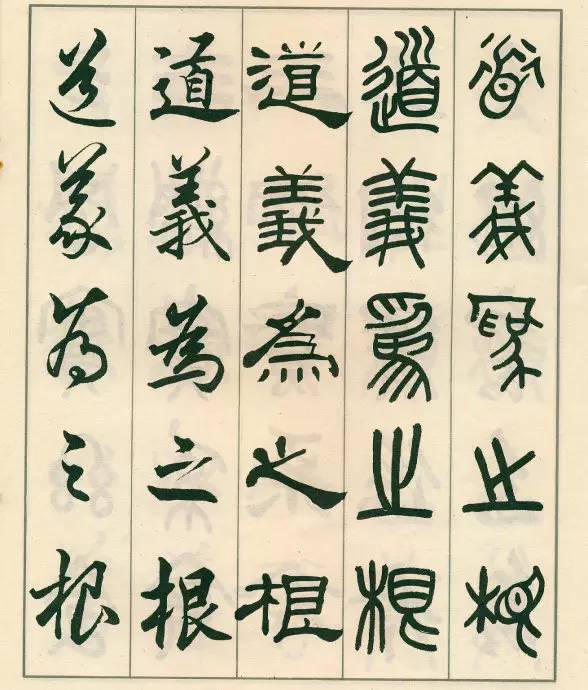 道義爲之根
道義爲之根
道義為之根
道義為之根
道義為之根